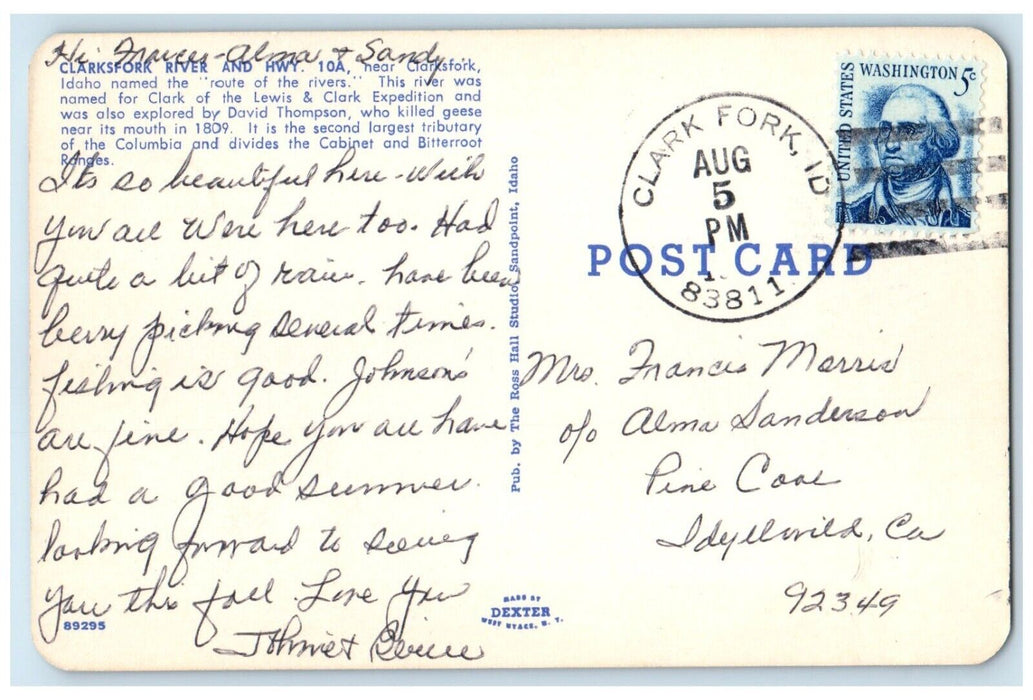 Hi Frances - Alma & Sandy
CLARKSFORK RIVER AND HWY. 10A, near Clarksfork,
Idaho named the "route of the rivers." This river was
named for Clark of the Lewis & Clark Expedition and
was also explored by David Thompson, who killed geese
near its mouth in 1809. It is the second largest tributary
of the Columbia and divides the Cabinet and Bitterroot
Ranges.
Its so beautiful here - Wish
you all were here too. Had
quite a bit of rain. have been
berry picking several times.
fishing is good. Johnson's
are fine. Hope you all have
had a good summer.
looking forward to seeing
you this fall. Love you
Johnie &
89295
Pub. by The Ross Hall Studio, Sandpoint, Idaho
MADE BY
DEXTER
WEST NYACK, N. Y.
CLARK FORK, ID
AUG
5
PM
83811
UNITED STATES
WASHINGTON 5c
POST CARD
Mrs. Francis Morris
c/o Alma Sanderson
Pine Cove
Idyllwild, Ca
92349